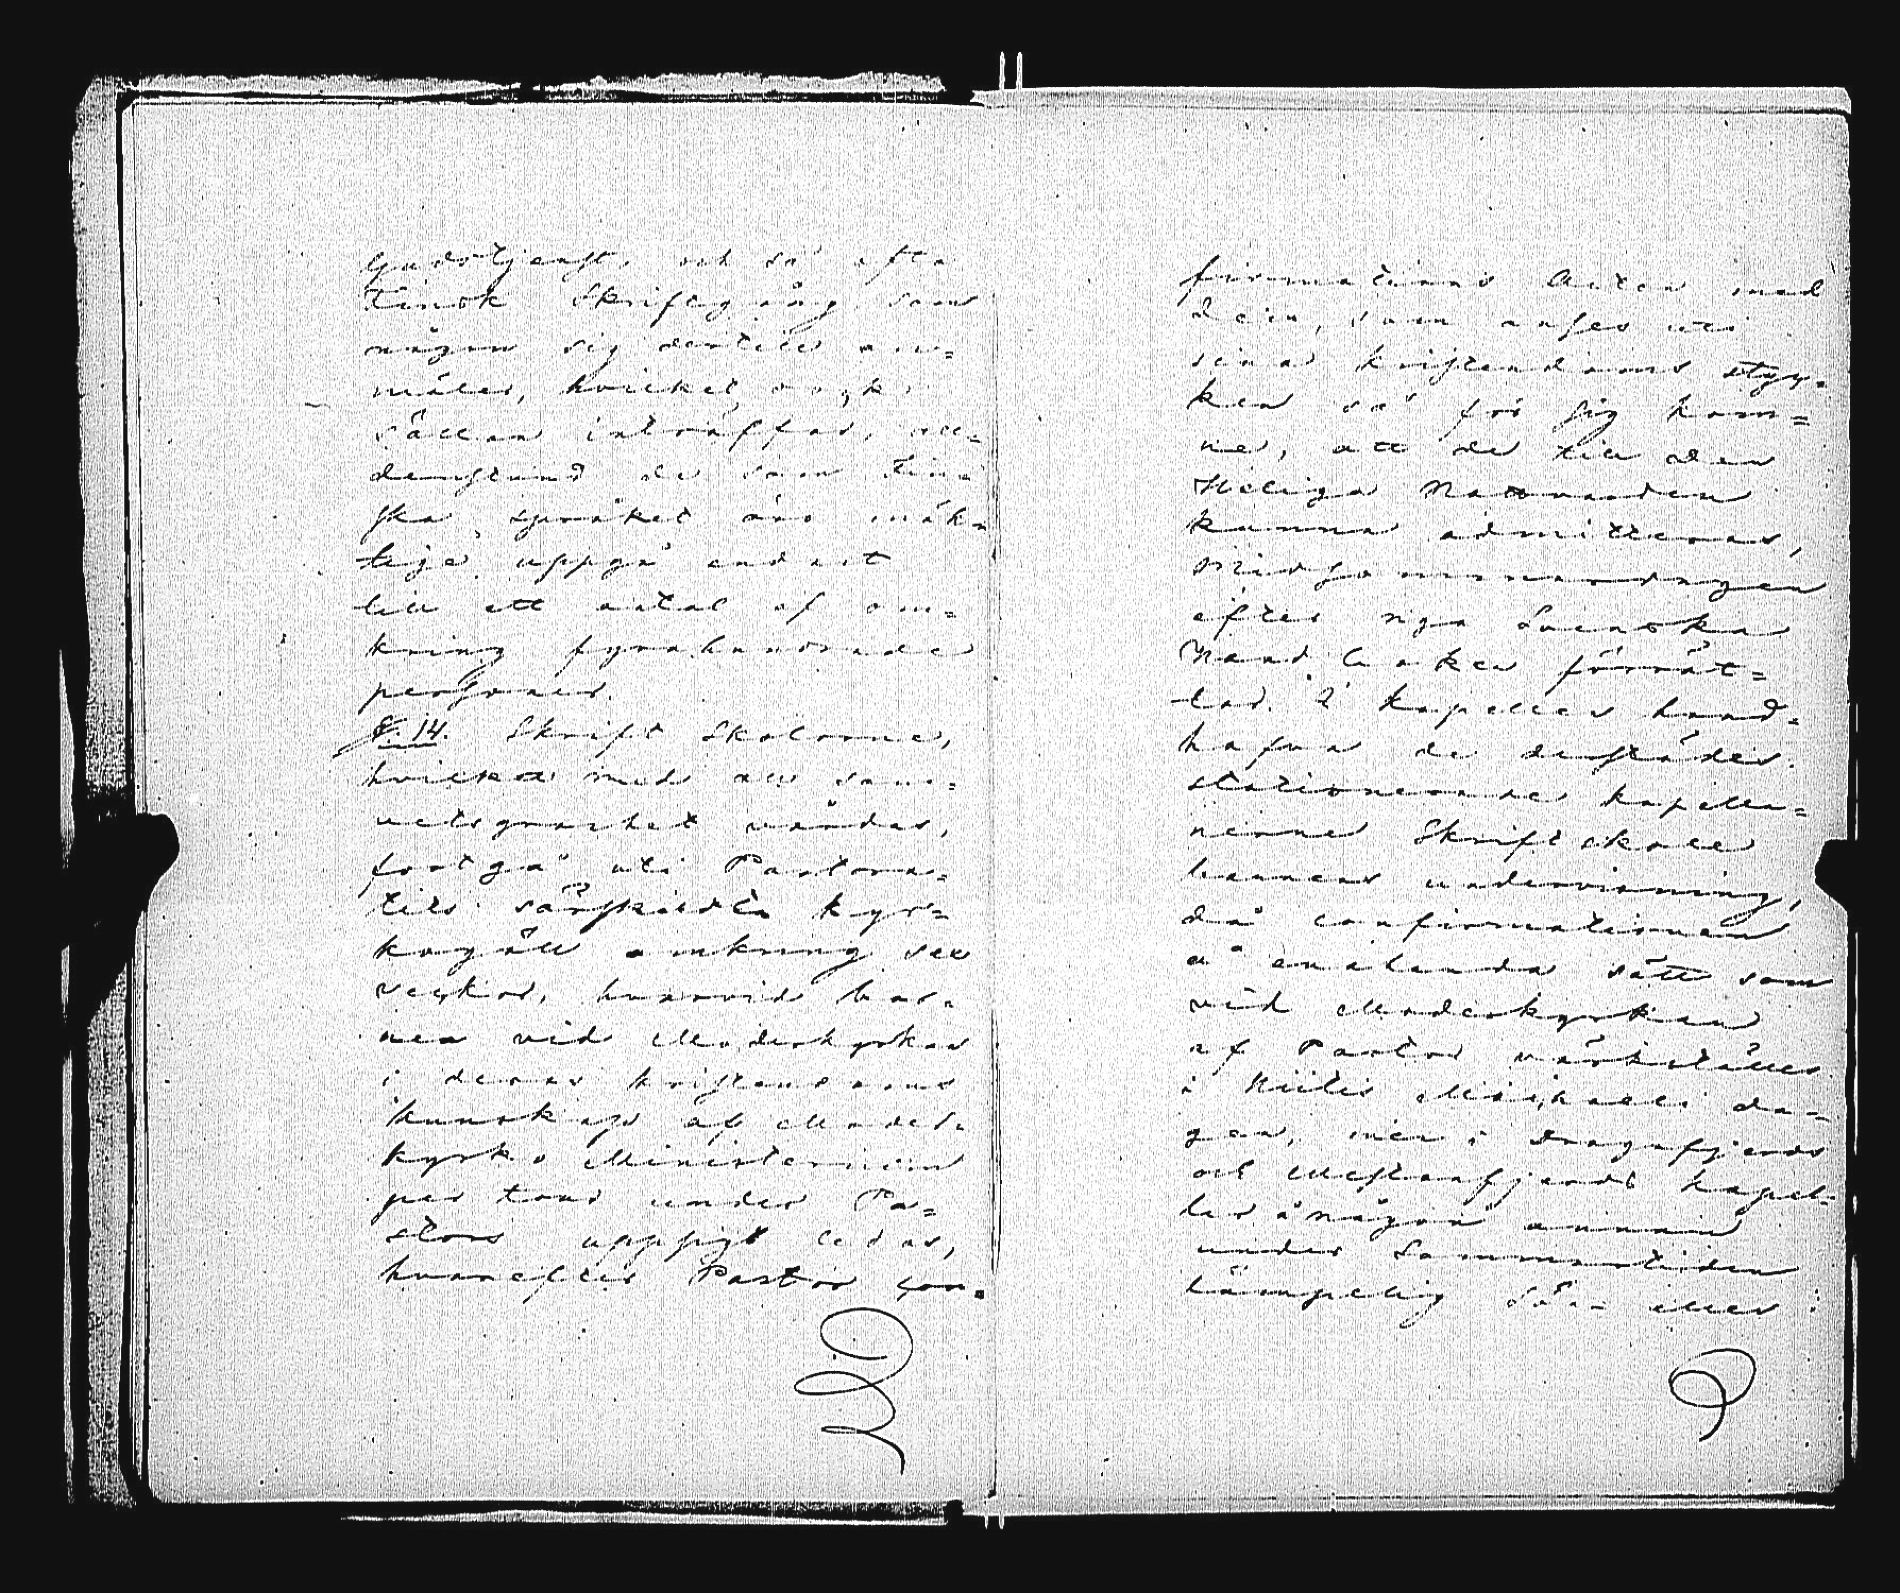 Gudstjenst, och så ofta
Finsk Skriftegång som
någon sig dertill an=
mäler, hvilket dock
sällan inträffar, all=
denstund de som Fin=
ska språket äro mäk=
tige uppgå endast
till ett antal af om=
kring fyrahundrade
personer.
§. 14. Skrift Skolorne,
hvilka med all sam=
vetsgranhet vårdas,
fortgå uti Pastora=
tets särskildta kyr=
kogäll omkring sex
veckor, hvarvid bar=
nen vid Moderkyrkan
i deras kristendoms
kunskap af Moder=
kyrko Ministerium
per tour under Pa=
stors uppsigt ledas,
hvarefter Pastor con=
firmations Acten med
dem, som anses uti
sina kristendoms styc=
ken så för sig kom=
ne, att de till den
Heliga Nattvarden
kunna admitteras,
Midsommarsdagen
efter nya Svenska
Handboken förrät=
tar. I kapellen hand=
hafva de derstädes
stationerade kapella=
nerne Skriftskole
barnens undervisning,
då confirmationen
å enahanda sätt som
vid Moderkyrkan
af Pastor värkställes
i Hiitis Michaeli da=
gen, men i Dragsfjerds
och Westanfjerds kapel=
ler å någon annan
under Sommartiden
lämpelig Sön- eller